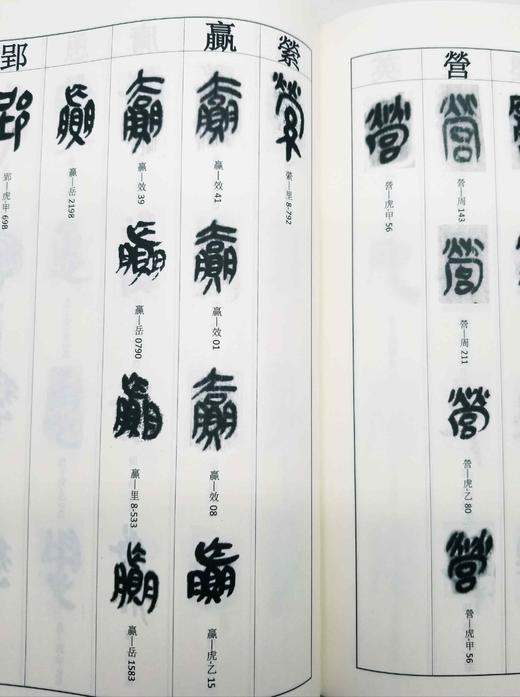 營
營—周 143
營—周 211
營—虎·乙 80
營—虎·甲 56
營—虎·甲 56
縈
縈—里 8-792
贏
贏—效 41
贏—效 01
贏—效 08
贏—虎·乙 15
贏—效 39
贏—岳 0790
贏—里 8-533
贏—岳 1583
贏—岳 2198
郢
郢—虎·甲 698